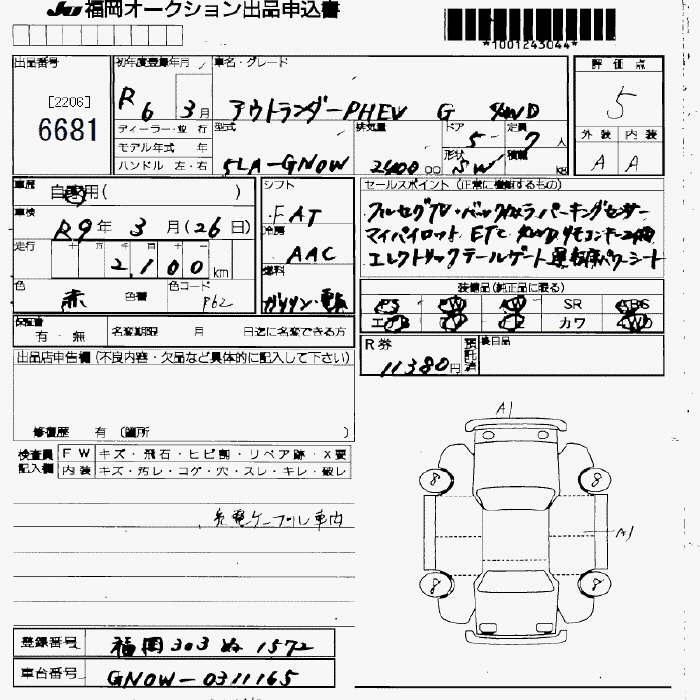 JU福岡オークション出品申込書
*1001243044*
出品番号
[2206]
6681
初年度登録年月
R6 3月
車名・グレード
アウトランダーPHEV G 4WD
評価点
5
外装 内装
A A
ディーラー・並行
モデル年式 年
ハンドル 左・右
型式
5LA-GN0W
排気量
2400cc
ドア
5
定員
7人
形状
SW
積載
kg
車歴
自家用( )
車検
R9年 3月(26日)
走行
十 万 千 百 十 一
2,100km
色
赤
色替
色コード
P62
シフト
FAT
冷房
AAC
燃料
ガソリン・電気
セールスポイント(正常に機能するもの)
フルセグTV・バックカメラ パーキングセンサー
マイパイロット ETC 4WD リモコンキー2個
エレクトリックテールゲート 運転席パワーシート
装備品(純正品に限る)
PS PW AW SR ABS
カワ
保証書
有・無
名変期限 月 日迄に名変できる方
R券
11380円
預託済
後日品
出品店申告欄(不良内容・欠品など具体的に記入して下さい)
修復歴 有 (箇所 )
検査員記入欄
FW キズ・飛石・ヒビ割・リペア跡・X要
内装 キズ・汚レ・コゲ・穴・スレ・キレ・破レ
充電ケーブル車内
A1
8 8
A1
8 8
登録番号 福岡303ぬ1572
車台番号 GN0W-0311165